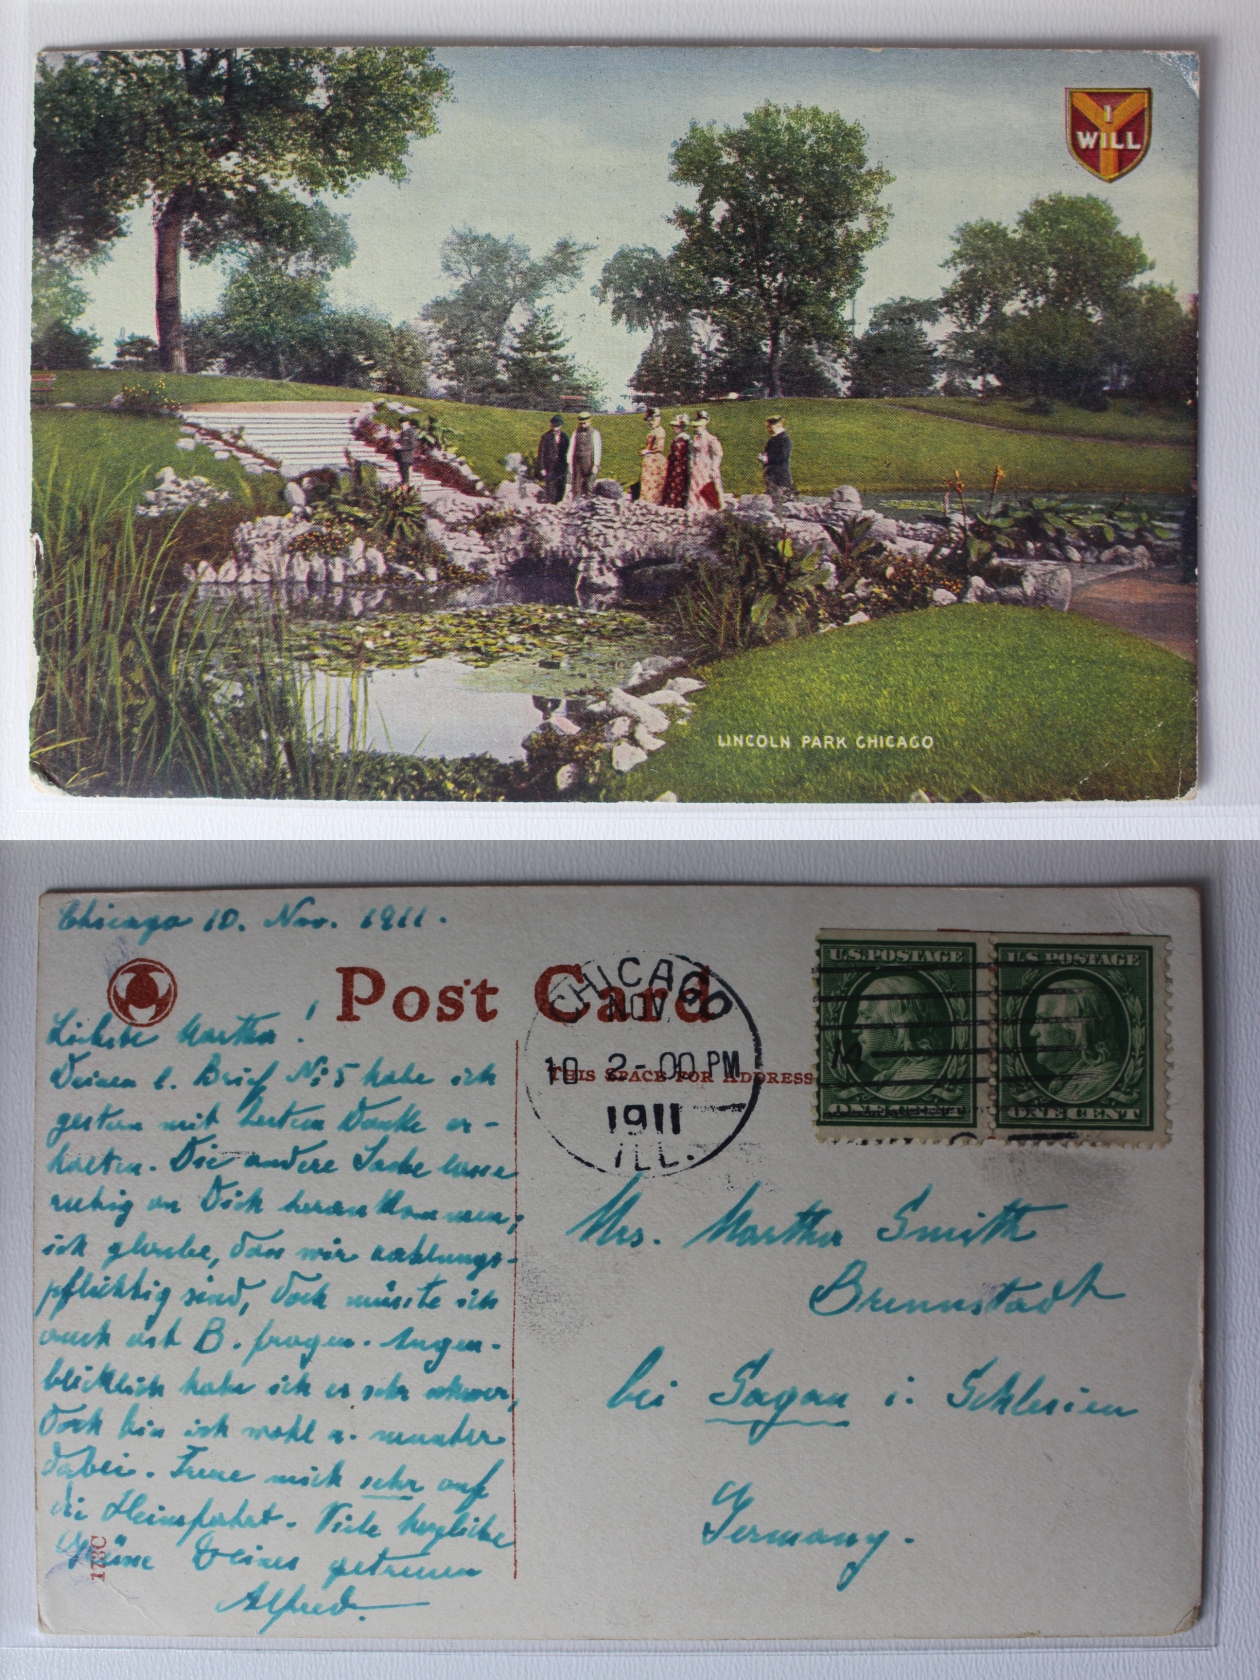 I
WILL
LINCOLN PARK CHICAGO
Chicago 10. Nov. 1911.
Post Card
THIS SPACE FOR ADDRESS
CHICAGO
NOV
10 2-00 PM
1911
ILL.
U.S. POSTAGE
ONE CENT
U.S. POSTAGE
ONE CENT
Liebste Martha!
Deinen l. Brief No 5 habe ich
gestern mit bestem Danke er-
halten. Die andere Sache lasse
ruhig an Dich herankommen;
ich glaube, dass wir zahlungs-
pflichtig sind, doch müsste ich
auch erst B. fragen. Augen-
blicklich habe ich es sehr schwer,
doch bin ich wohl u. munter
dabei. Freue mich sehr auf
die Heimfahrt. Viele herzliche
Grüsse Deines getreuen
Alfred.
173C
Mrs. Martha Smith
Brennstadt
bei Sagan i. Schlesien
Germany.